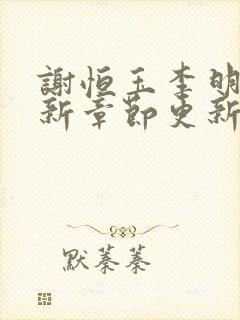 謝恒玉李明
新章節更新
默蓁蓁